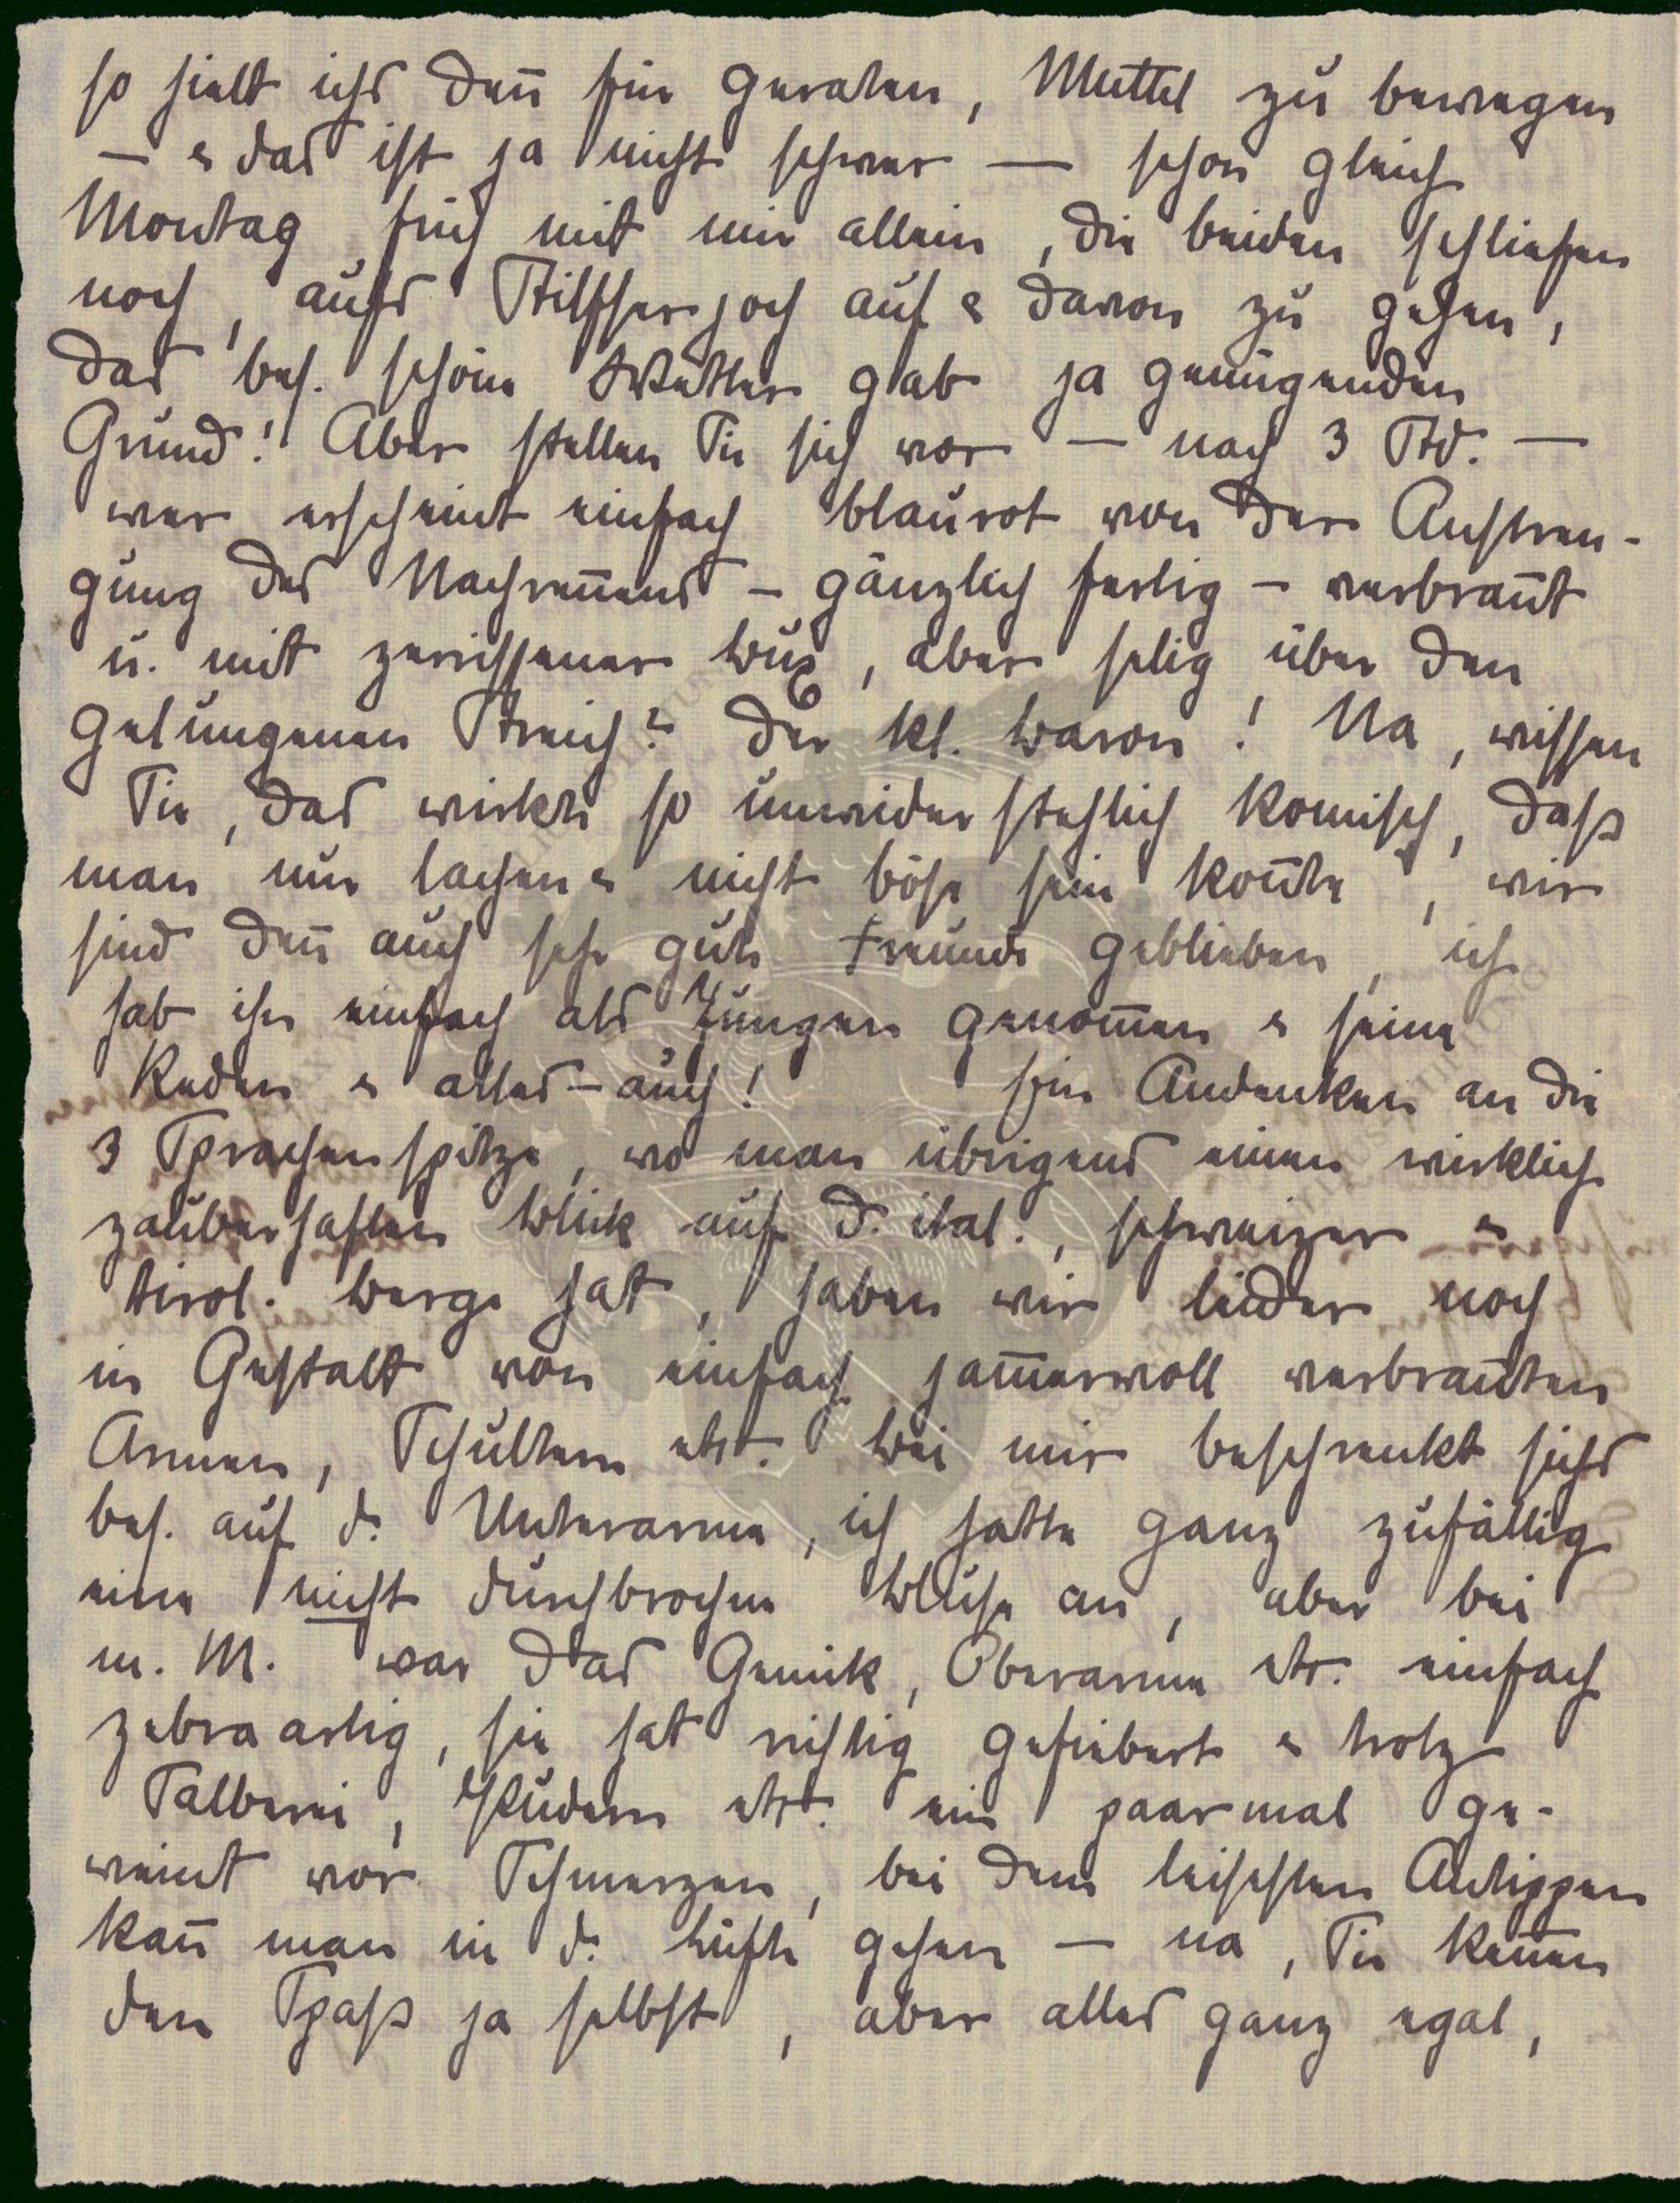 so hielt ichs deñ für geraten, Muttel zu bewegen
– & das ist ja nicht schwer — schon gleich
Montag früh mit mir allein, die beiden schliefen
noch, aufs Stilfserjoch auf & davon zu gehen,
das bes. schöne Wetter gab ja genügenden
Grund! Aber stellen Sie sich vor – nach 3 Std. –
wer erscheint einfach blaurot von der Anstren-
gung des Nachreñens – gänzlich fertig – verbrañt
u. mit zerrissener Bux, aber selig über den
gelungenen Streich? Der kl. Baron! Na, wissen
Sie, das wirkte so unwiderstehlich komisch, dass
man nur lachen & nicht böse sein koñte, wir
sind deñ auch sehr gute Freunde geblieben, ich
hab ihn einfach als Jungen genom̄en & seine
Reden & alles – auch! Ein Andenken an die
3 Sprachenspitze, wo man übrigens einen wirklich
zauberhaften Blick auf d. ital., schweizer &
tirol. Berge hat, haben wir leider noch
in Gestalt von einfach jam̄ervoll verbrañten
Armen, Schultern etct. Bei mir beschrenkt sichs
bes. auf d. Unterarme, ich hatte ganz zufällig
eine nicht durchbrochne Bluse an, aber bei
m. M. war das Genick, Oberarme etc. einfach
zebraartig, sie hat richtig gefiebert & trotz
Salberei, Pudern etct. ein paarmal ge-
weint vor Schmerzen, bei dem leisesten Antippen
kañ man in d. Lüfte gehen – na, Sie keñen
den Spass ja selbst, aber alles ganz egal,